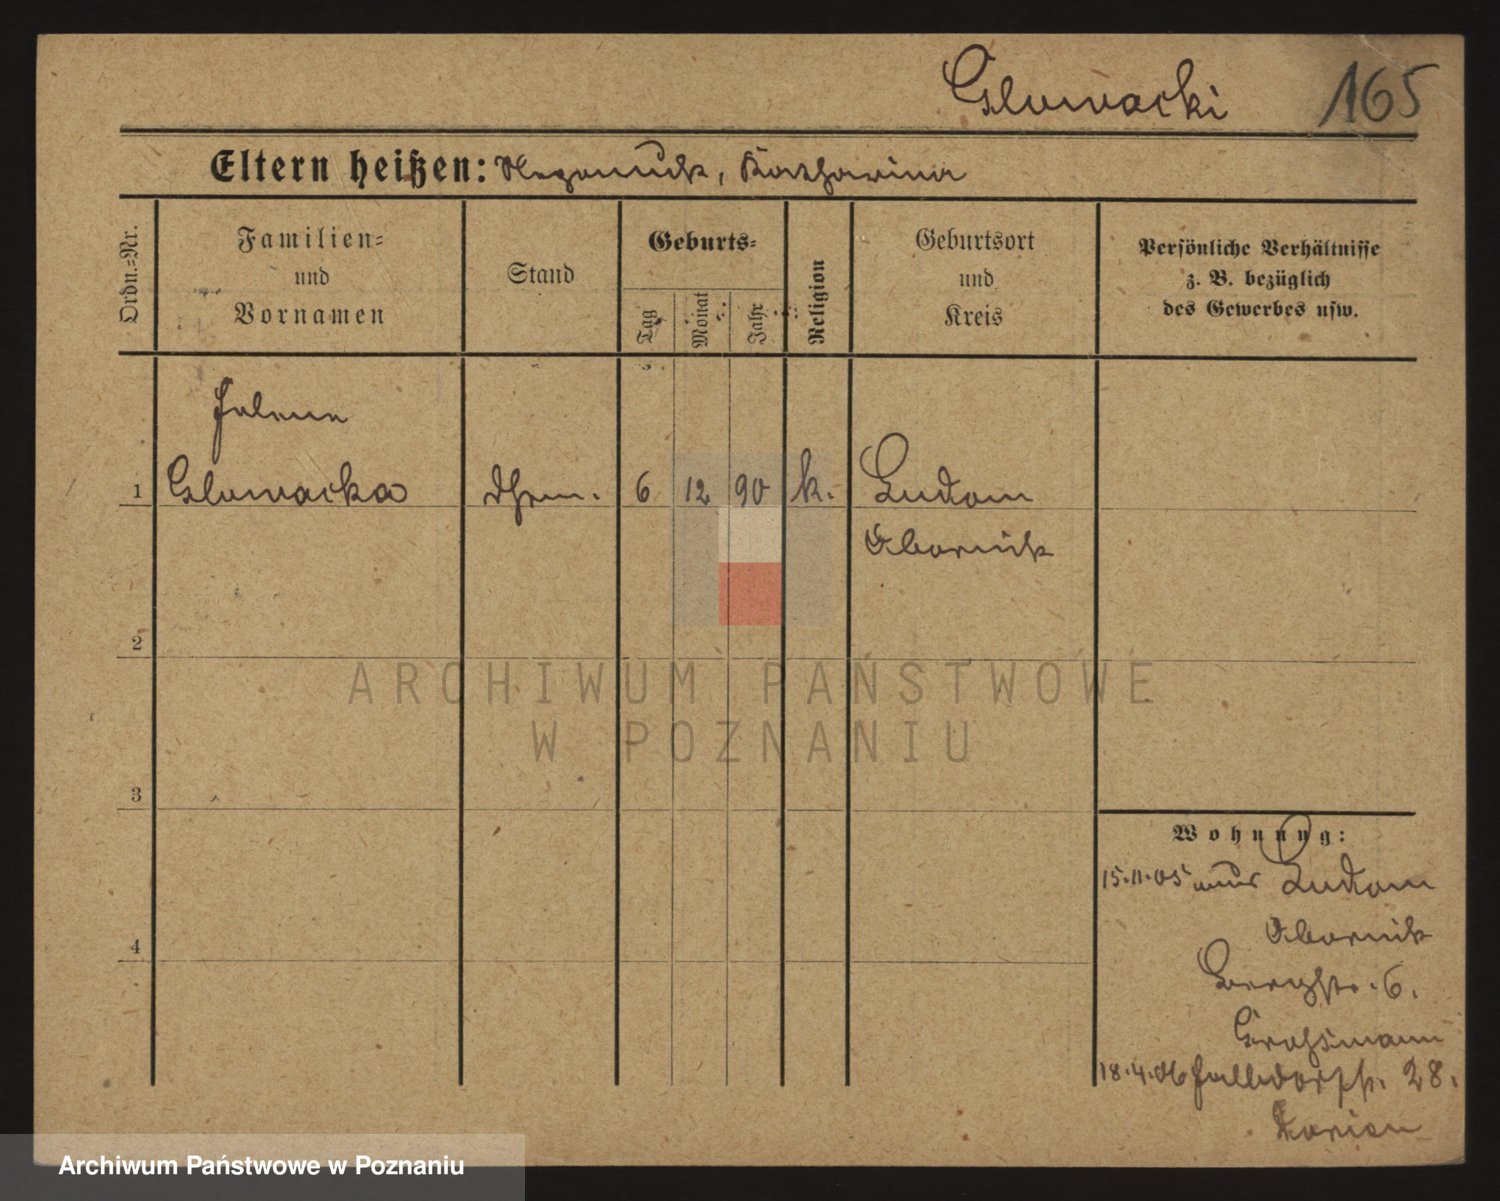 Glowacki 165
Eltern heißen: Katharina
Ordn.=Nr.
Familien=
und
Vornamen
Stand
Geburts=
Tag
Monat
Jahr
Religion
Geburtsort
und
Kreis
Persönliche Verhältnisse
z. B. bezüglich
des Gewerbes usw.
Helene
1 Glowacka 6 12 90 k. Ludom
Obornik
2
ARCHIWUM PAŃSTWOWE
W POZNANIU
3
Wohnung:
15.11.05 aus Ludom
Obornik
4
Bergstr. 6.
Grossmann
18.4.06 Halbdorfstr. 28.
Archiwum Państwowe w Poznaniu